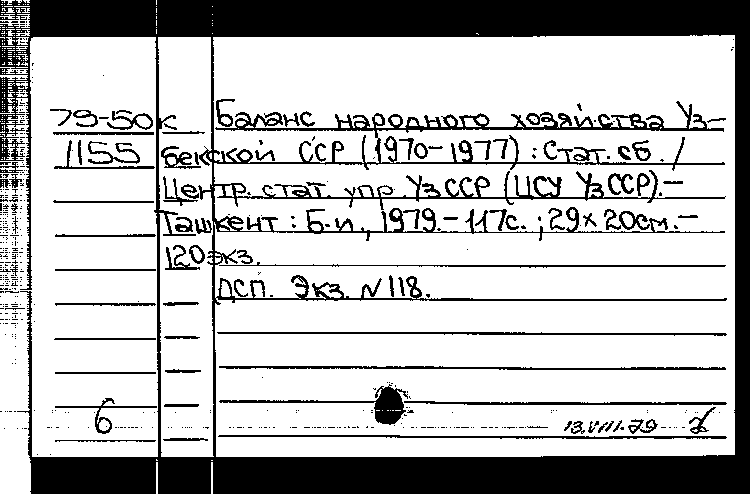 79-50к Баланс народного хозяйства Уз-
1155 бекской ССР (1970-1977) : Стат. сб. /
Центр. стат. упр. УзССР (ЦСУ УзССР).-
Ташкент : Б.и., 1979.- 117с. ; 29×20см.-
120экз.
ДСП. Экз. N118.
6
13.VIII.79